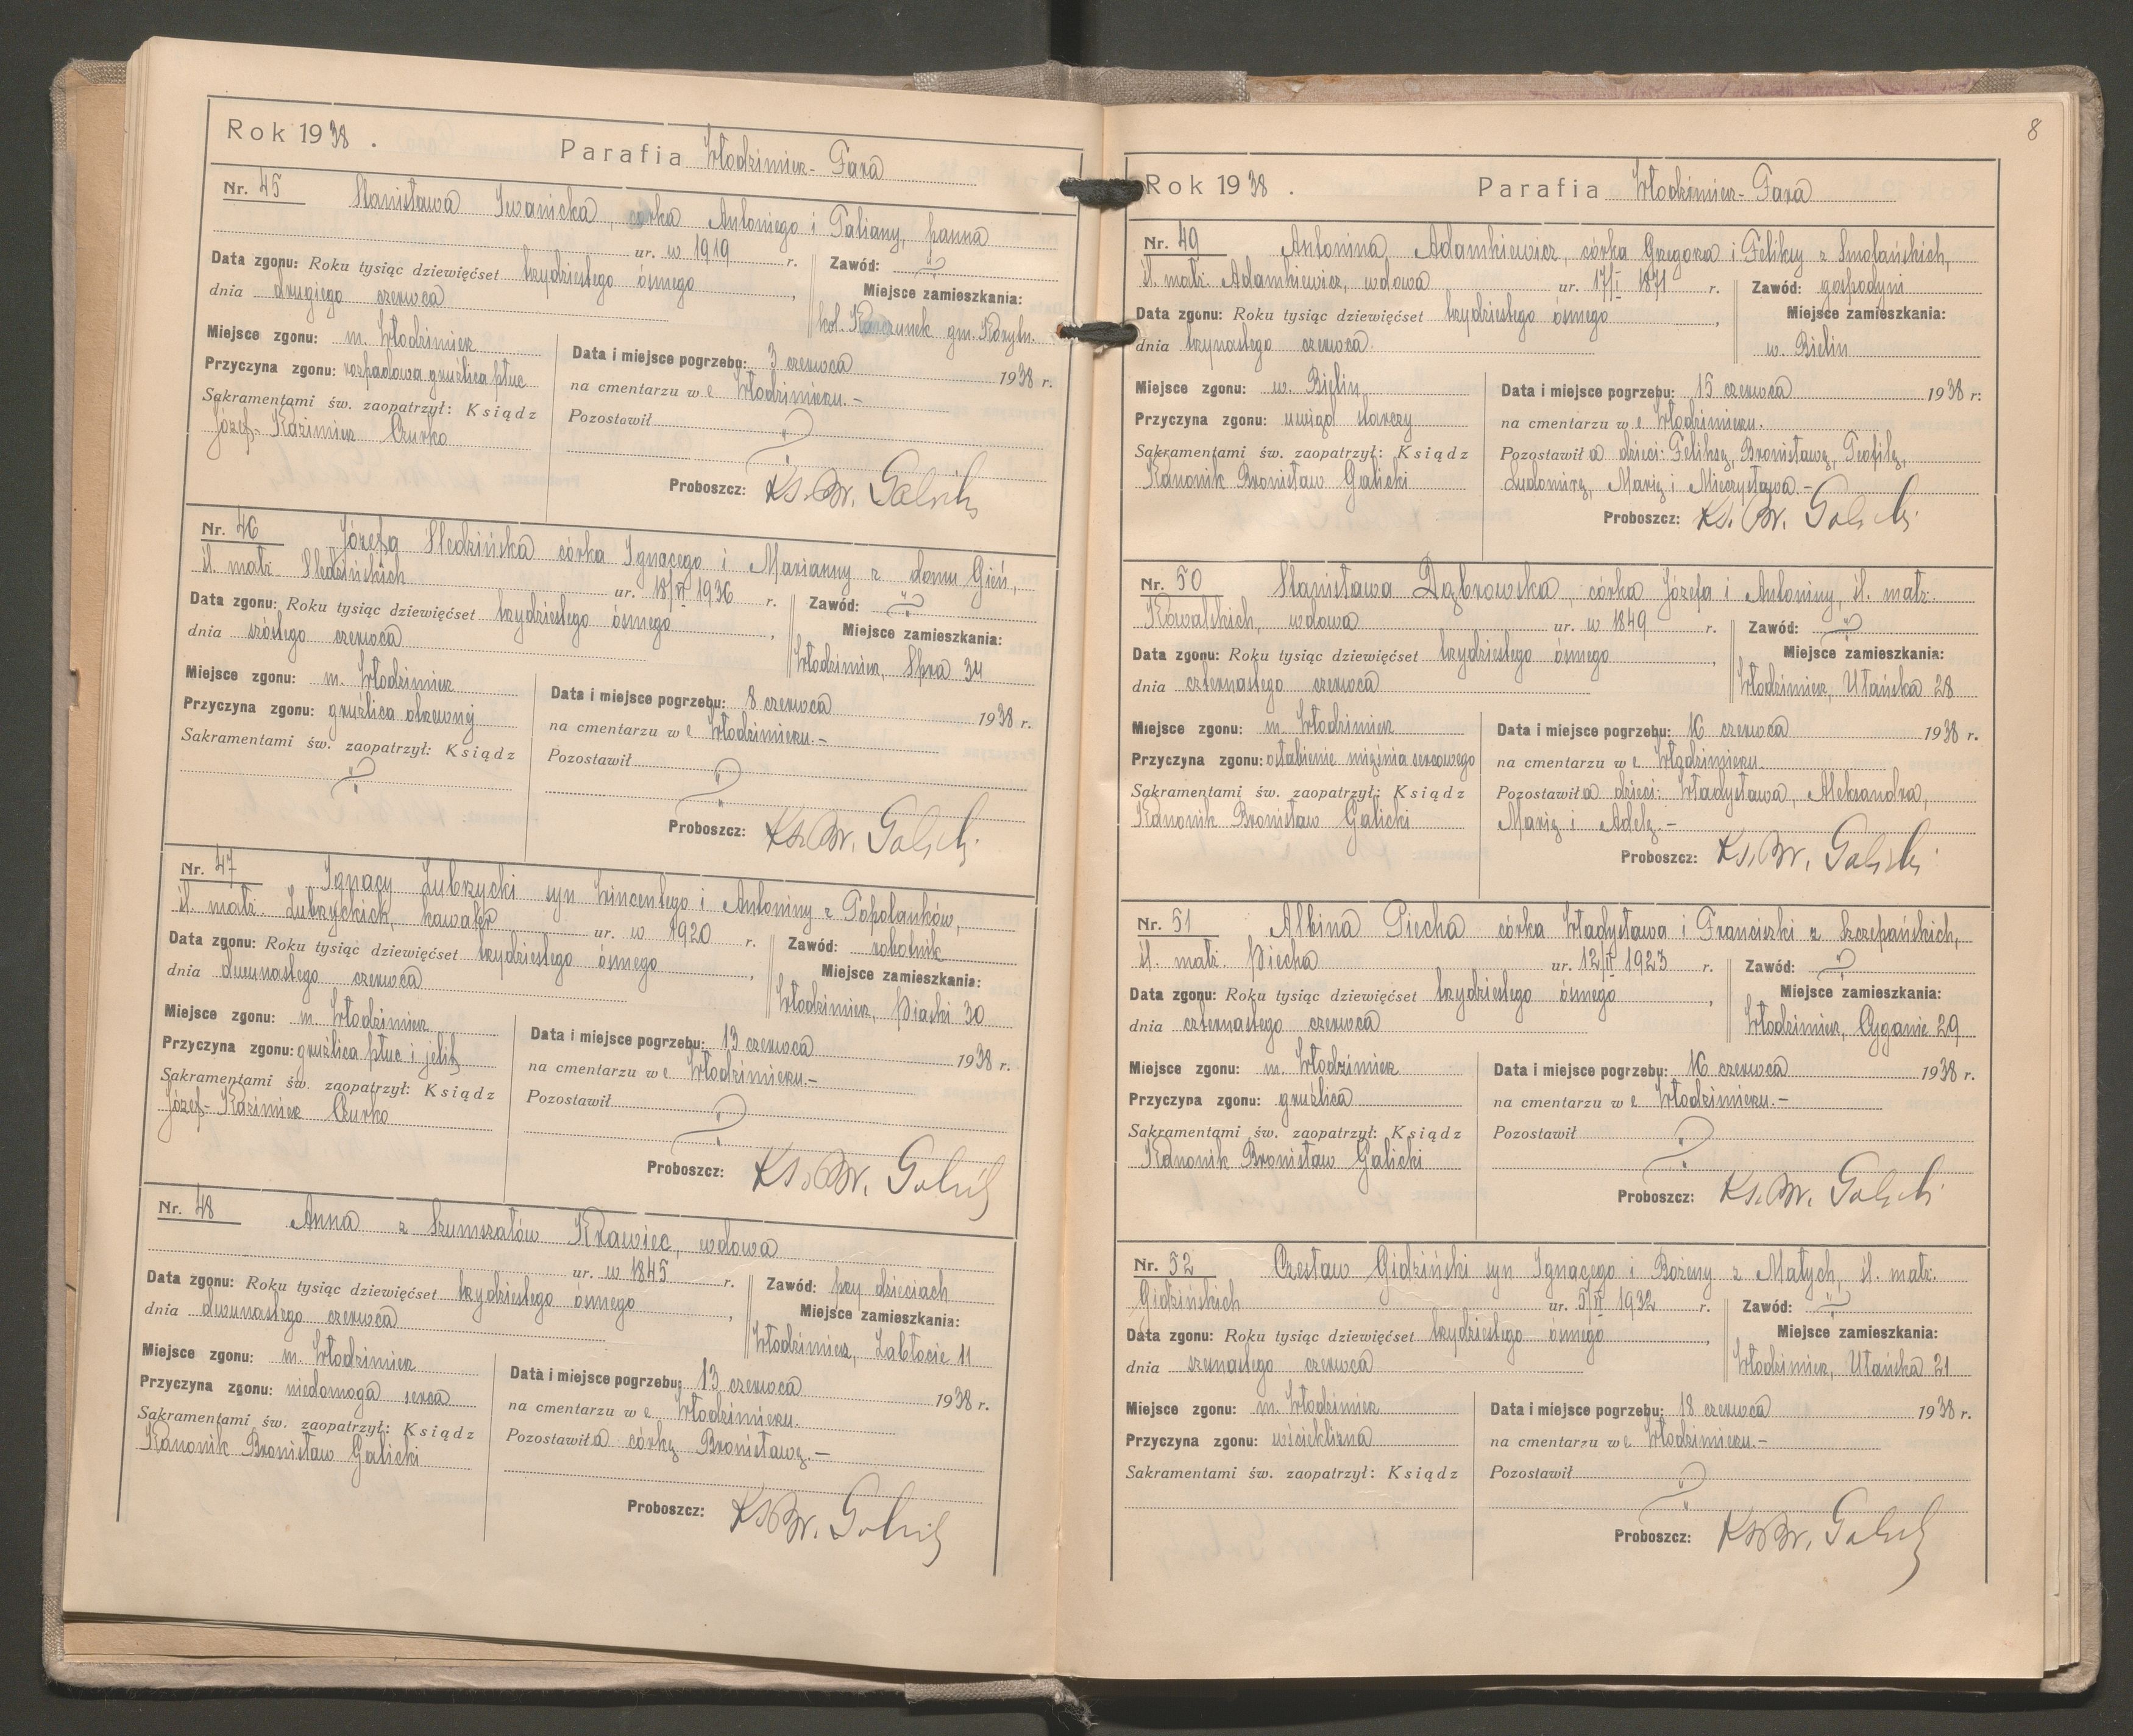 Rok 1938.
Parafia Włodzimierz-Fara
Nr. 45 Stanisława Iwanicka, córka Antoniego i Taliany, panna
ur. w 1919 r.
Zawód:
Data zgonu: Roku tysiąc dziewięćset trzydziestego ósmego,
dnia drugiego czerwca
Miejsce zamieszkania:
kol. Karczunek gm. Korytn.
Miejsce zgonu: m. Włodzimierz
Przyczyna zgonu: rozpadowa gruźlica płuc
Sakramentami św. zaopatrzył: Ksiądz
Józef-Kazimierz Czurko
Data i miejsce pogrzebu: 3 czerwca 1938 r.
na cmentarzu we Włodzimierzu.-
Pozostawił
Proboszcz: Ks. Br. Galicki
Nr. 46 Józefa Śledzińska córka Ignacego i Marianny z domu Gień,
śl. małż. Śledzińskich
ur. 18/VI 1936 r.
Zawód:
Data zgonu: Roku tysiąc dziewięćset trzydziestego ósmego,
dnia szóstego czerwca
Miejsce zamieszkania:
Włodzimierz, 34
Miejsce zgonu: m. Włodzimierz
Przyczyna zgonu: gruźlica otrzewnej
Sakramentami św. zaopatrzył: Ksiądz
Data i miejsce pogrzebu: 8 czerwca 1938 r.
na cmentarzu we Włodzimierzu.-
Pozostawił
Proboszcz: Ks. Br. Galicki
Nr. 47 Ignacy Zubrzycki syn Wincentego i Antoniny z Topolanków,
śl. małż. Zubrzyckich, kawaler
ur. w 1920 r.
Zawód: robotnik
Data zgonu: Roku tysiąc dziewięćset trzydziestego ósmego,
dnia dwunastego czerwca
Miejsce zamieszkania:
Włodzimierz, Piaski 30
Miejsce zgonu: m. Włodzimierz
Przyczyna zgonu: gruźlica płuc i jelit
Sakramentami św. zaopatrzył: Ksiądz
Józef-Kazimierz Czurko
Data i miejsce pogrzebu: 13 czerwca 1938 r.
na cmentarzu we Włodzimierzu.-
Pozostawił
Proboszcz: Ks. Br. Galicki
Nr. 48 Anna z Szumrzałów Krawiec, wdowa
ur. w 1845 r.
Zawód: przy dzieciach
Data zgonu: Roku tysiąc dziewięćset trzydziestego ósmego,
dnia dwunastego czerwca
Miejsce zamieszkania:
Włodzimierz, Zabłocie 11
Miejsce zgonu: m. Włodzimierz
Przyczyna zgonu: niedomoga serca
Sakramentami św. zaopatrzył: Ksiądz
Kanonik Bronisław Galicki
Data i miejsce pogrzebu: 13 czerwca 1938 r.
na cmentarzu we Włodzimierzu.
Pozostawiła córkę Bronisławę.-
Proboszcz: Ks Br. Galicki
8
Rok 1938.
Parafia Włodzimierz-Fara
Nr. 49 Antonina Adamkiewicz, córka Grzegorza i Feliksy z Smolańskich,
śl. małż. Adamkiewicz, wdowa
ur. 17/I 1871 r.
Zawód: gospodyni
Data zgonu: Roku tysiąc dziewięćset trzydziestego ósmego,
dnia trzynastego czerwca.
Miejsce zamieszkania:
w. Bielin
Miejsce zgonu: w. Bielin
Przyczyna zgonu: uwiąd starczy
Sakramentami św. zaopatrzył: Ksiądz
Kanonik Bronisław Galicki
Data i miejsce pogrzebu: 15 czerwca 1938 r.
na cmentarzu we Włodzimierzu.
Pozostawiła dzieci: Feliksę, Bronisławę, Teofilę,
Ludomirę, Marię i Mieczysława.-
Proboszcz: Ks. Br. Galicki
Nr. 50 Stanisława Dąbrowska, córka Józefa i Antoniny, śl. małż.
Kowalskich, wdowa
ur. w 1849 r.
Zawód:
Data zgonu: Roku tysiąc dziewięćset trzydziestego ósmego,
dnia czternastego czerwca
Miejsce zamieszkania:
Włodzimierz, Ułańska 28
Miejsce zgonu: m. Włodzimierz
Przyczyna zgonu: osłabienie mięśnia sercowego
Sakramentami św. zaopatrzył: Ksiądz
Kanonik Bronisław Galicki
Data i miejsce pogrzebu: 16 czerwca 1938 r.
na cmentarzu we Włodzimierzu.
Pozostawiła dzieci: Władysława, Aleksandra,
Marię i Adelę.-
Proboszcz: Ks. Br. Galicki
Nr. 51 Albina Piecha córka Władysława i Franciszki z Szczepańskich,
śl. małż. Piecha
ur. 12/II 1923 r.
Zawód:
Data zgonu: Roku tysiąc dziewięćset trzydziestego ósmego,
dnia czternastego czerwca
Miejsce zamieszkania:
Włodzimierz, Cyganie 29
Miejsce zgonu: m. Włodzimierz
Przyczyna zgonu: gruźlica
Sakramentami św. zaopatrzył: Ksiądz
Kanonik Bronisław Galicki
Data i miejsce pogrzebu: 16 czerwca 1938 r.
na cmentarzu we Włodzimierzu.-
Pozostawił
Proboszcz: Ks. Br. Galicki
Nr. 52 Czesław Gidziński syn Ignacego i Bożeny z Małych, śl. małż.
Gidzińskich
ur. 5/VI 1932 r.
Zawód:
Data zgonu: Roku tysiąc dziewięćset trzydziestego ósmego,
dnia szesnastego czerwca
Miejsce zamieszkania:
Włodzimierz, Ułańska 21
Miejsce zgonu: m. Włodzimierz
Przyczyna zgonu: wścieklizna
Sakramentami św. zaopatrzył: Ksiądz
Data i miejsce pogrzebu: 18 czerwca 1938 r.
na cmentarzu we Włodzimierzu.-
Pozostawił
Proboszcz: Ks Br. Galicki